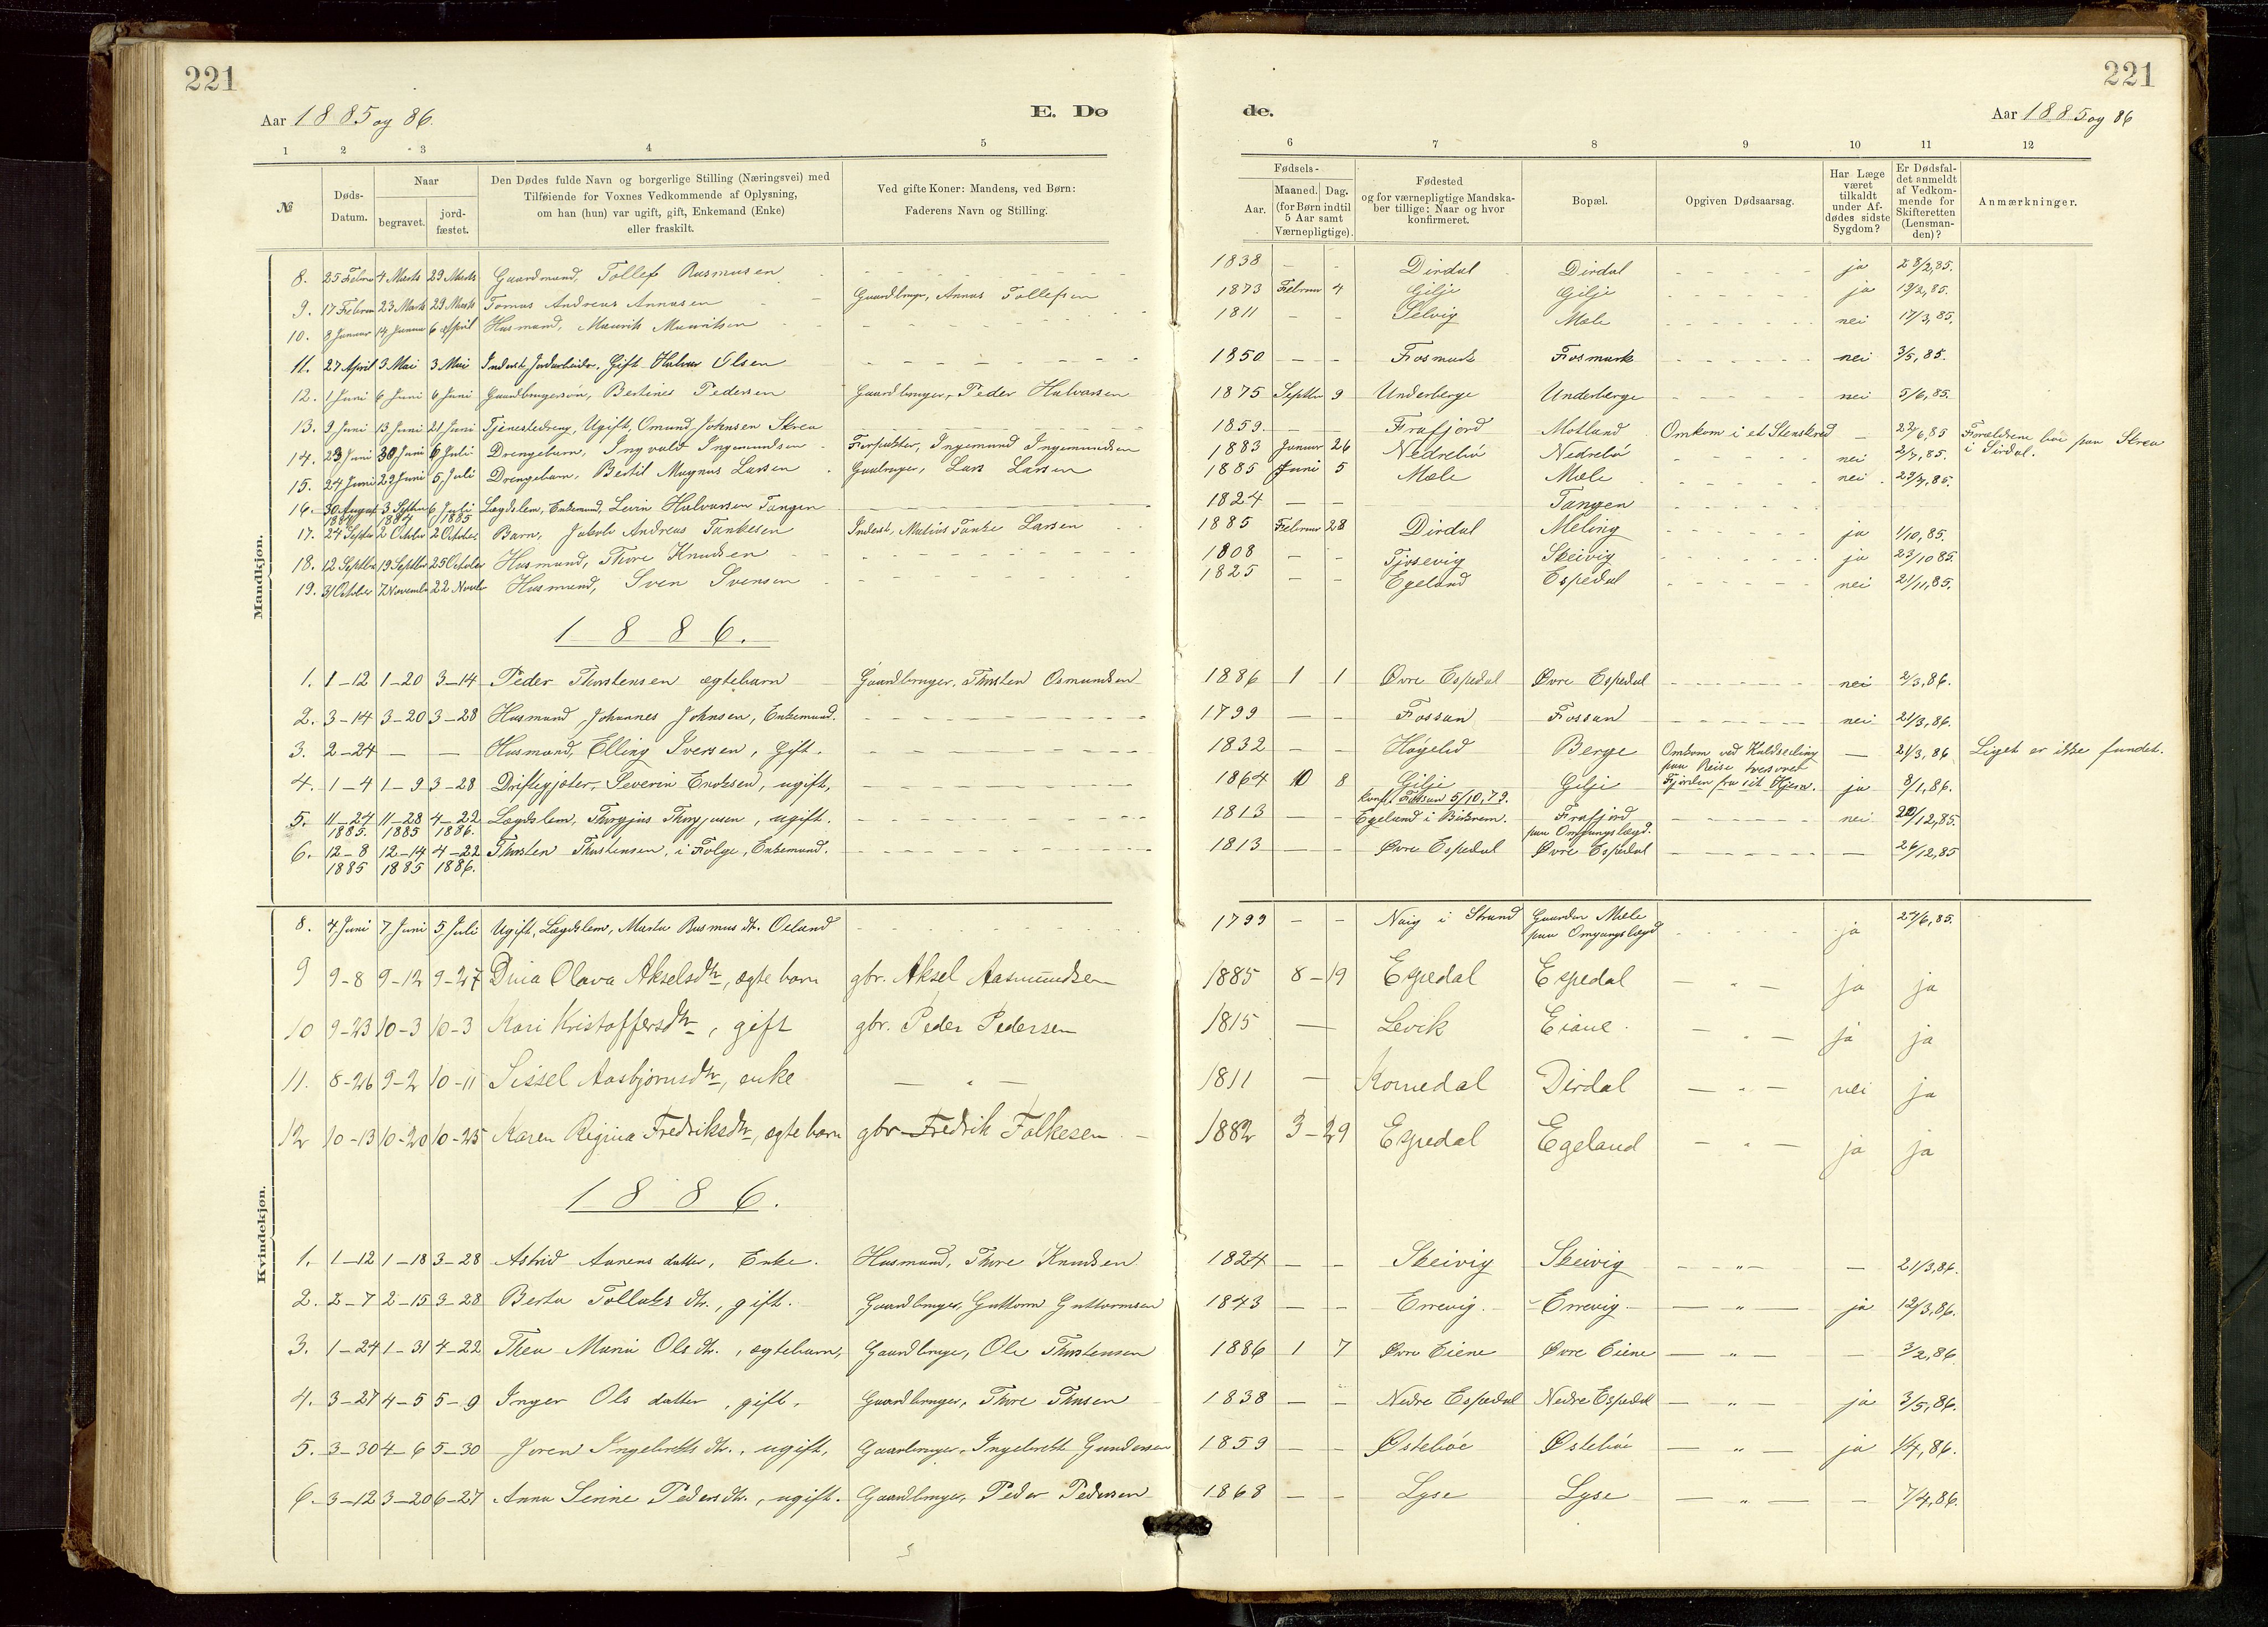 221
221
Aar 1885 og 86.
E. Dø
de.
Aar 1885 og 86
1 2 3 4 5 6 7 8 9 10 11 12
№
Døds-Datum.
Naar
begravet.
jord-fæstet.
Den Dødes fulde Navn og borgerlige Stilling (Næringsvei) med
Tilføiende for Voxnes Vedkommende af Oplysning,
om han (hun) var ugift, gift, Enkemand (Enke)
eller fraskilt.
Ved gifte Koner: Mandens, ved Børn:
Faderens Navn og Stilling.
Fødsels-
Aar.
Maaned. Dag.
(for Børn indtil
5 Aar samt
Værnepligtige).
Fødested
og for værnepligtige Mandska-
ber tillige: Naar og hvor
konfirmeret.
Bopæl.
Opgiven Dødsaarsag.
Har Læge
været
tilkaldt
under Af-
dødes sidste
Sygdom?
Er Dødsfal-
det anmeldt
af Vedkom-
mende for
Skifteretten
(Lensman-
den)?
Anmærkninger.
Mandkjøn.
8. 25 Febru 4 Marts 29 Marts Gaardmand, Tollef Rasmusen - - 1838 - - Dirdal Dirdal - - ja 28/2,85.
9. 17 Februar 23 Marts 29 Marts Tomas Andreas Annasen - Gaardbruger, Annas Tollefsen 1873 Februar 4 Gilje Gilje - - ja 19/2,85.
10. 8 Januar 14 Januar 6 April Husmand, Maurits Mauritsen - - 1811 - - Selvig Mæle - - nei 17/3,85.
11. 27 April 3 Mai 3 Mai Inderst, Jordarbeider, Gift Halvor Olsen - - 1850 - - Fosmark Fosmark - - nei 3/5,85.
12. 1 Juni 6 Juni 6 Juni Gaardbrugersøn, Bertines Pedersen Gaardbruger, Peder Halvorsen 1875 Septbr 9 Underberge Underberge - - nei 5/6,85.
13. 9 Juni 13 Juni 21 Juni Tjenestedreng, Ugift, Omund Johnsen Skrea - - 1859 - - Frafjord Motland Omkom i et Stenskred - 22/6,85 Forældrene bor paa Skrea
i Sirdal.
14. 23 Juni 30 Juni 6 Juli Drengebarn, Ingvald Ingemundsen - Forpakter, Ingemund Ingemundsen 1883 Januar 26 Nedrebø Nedrebø - - nei 2/7,85.
15. 24 Juni 29 Juni 5 Juli Drengebarn, Bertil Magnus Larsen - Gaardbruger, Lars Larsen 1885 Juni 5 Mæle Mæle - - nei 23/7,85.
16. 30 August 3 Septbr 6 Juli Lægdslem, Enkemand, Levin Halvorsen Tangen - - 1824 - - Tangen - -
1884 1884 1885
17. 24 Septbr 2 October 2 October Barn, Jakob Andreas Tankesen Inderst, Matias Tanke Larsen 1885 Februar 28 Dirdal Meling - - ja 1/10,85.
18. 12 Septbr 19 Septbr 25 October Husmand, Thore Knudsen - - 1808 - - Tjosevig Skeivig - - ja 23/10 85.
19. 31 October 7 November 22 Novbr Husmand, Sven Svensen - - 1825 - - Egeland Espedal - - nei 21/11,85.
1886.
1. 1-12 1-20 3-14 Peder Thorstensen ægtebarn Gaardbruger, Thorsten Osmundsen 1886 1 1 Øvre Espedal Øvre Espedal - - nei 2/3,86.
2. 3-14 3-20 3-28 Husmand, Johannes Johnsen, Enkemand. - - 1799 - - Fossan Fossan - - nei 21/3,86.
3. 2-24 - - Husmand, Elling Iversen, Gift. - - 1832 - - Høgelid Berge Omkom ved Kuldseiling
paa Reise tversover
Fjorden fra sit Hjem. - 21/3,86 Liget er ikke fundet.
4. 1-4 1-9 3-28 Driftegjæter, Severin Enoksen, ugift, - - 1864 10 8 Gilje
konft. Fossan 5/10,79. Gilje ja 8/1,86.
5. 11-24 11-28 4-22 Lægdslem, Thorgius Thorgjusen, ugift. - - 1813 - - Egeland i Birkrem. Frafjord
paa Omgangslægd. - - nei 20/12,85.
1885. 1885 1886.
6. 12-8 12-14 4-22 Thorsten Thorstensen, i Følge, Enkemand. - - 1813 - - Øvre Espedal Øvre Espedal - - - 26/12,85
1885 1885 1886.
Kvindekjøn.
8. 4 Juni 7 Juni 5 Juli Ugift, Lægdslem, Marta Rasmusdtr. Oeland - - 1799 - - Naig i Strand Gaarden Mæle
paa Omgangslægd - - ja 27/6,85.
9 9-8 9-12 9-27 Dina Olava Akselsdtr, ægte barn gbr. Aksel Aasmundsen 1885 8-19 Espedal Espedal - " - ja ja
10 9-23 10-3 10-3 Kari Kristoffersdtr, gift gbr. Peder Pedersen 1815 - Levik Eiane. - " - ja ja
11. 8-26 9-2 10-11 Sissel Aasbjørnsdtr, enke - " - 1811 - Komedal Dirdal - " - nei ja
12 10-13 10-20 10-25 Karen Regina Fredriksdtr, ægte barn gbr Fredrik Falkesen - 1882 3-29 Espedal Egeland - " - ja ja
1886.
1. 1-12 1-18 3-28 Astrid Aanens datter, Enke. Husmand, Thore Knudsen 1824 - - Skeivig Skeivig - " - - 21/3,86.
2. 2-7 2-15 3-28 Berta Tollaksdtr., gift. Gaardbruger, Guttorm Guttormsen 1843 - - Errevig. Errevig. - " - ja 12/3,86.
3. 1-24 1-31 4-22 Thea Maria Olsdtr., ægtebarn, Gaardbruger, Ole Thorstensen 1886 1 7 Øvre Eiene Øvre Eiene - " - - 3/2,86
4. 3-27 4-5 5-9 Inger Ols datter, gift. Gaardbruger, Thore Thorsen 1838 - - Nedre Espedal Nedre Espedal - " - ja 3/5,86.
5. 3-30 4-6 5-30 Joren Ingebretsdtr., ugift, Gaardbruger, Ingebrett Gundersen 1859 - - Østebøe Østebøe - " - ja 1/4,86.
6. 3-12 3-20 6-27 Anna Serine Pedersdtr., ugift. Gaardbruger, Peder Pedersen 1868 - - Lyse Lyse - " - - 7/4,86.